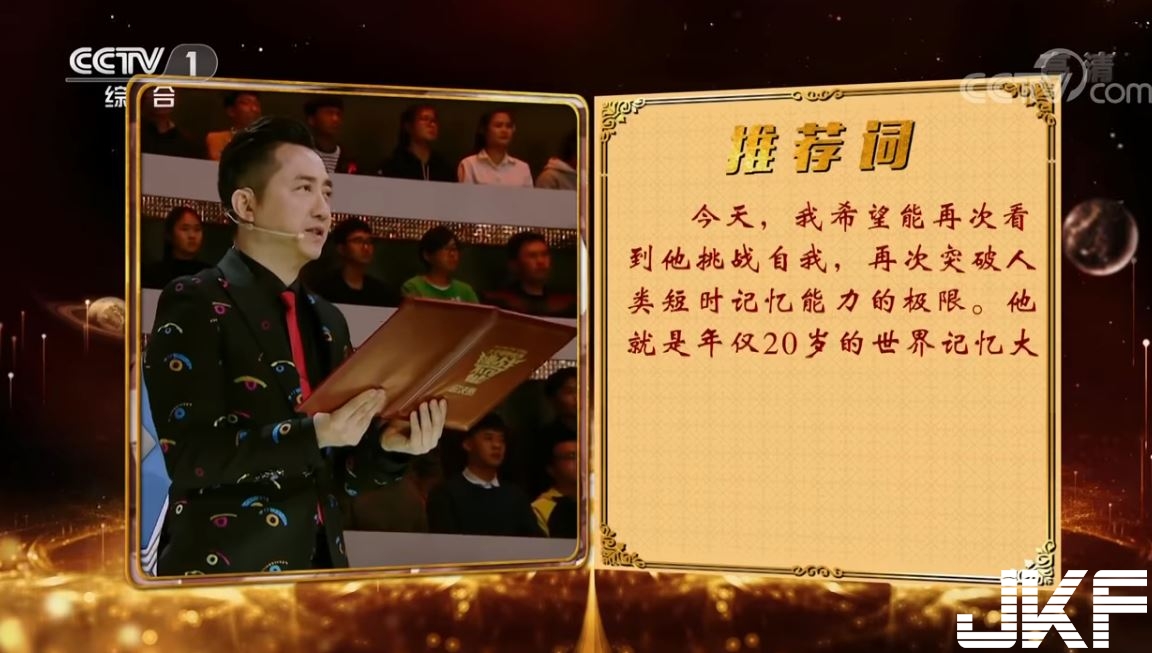 CCTV 1
综合
高清
CCTV com
推荐词
今天，我希望能再次看
到他挑战自我，再次突破人
类短时记忆能力的极限。他
就是年仅20岁的世界记忆大
JKF